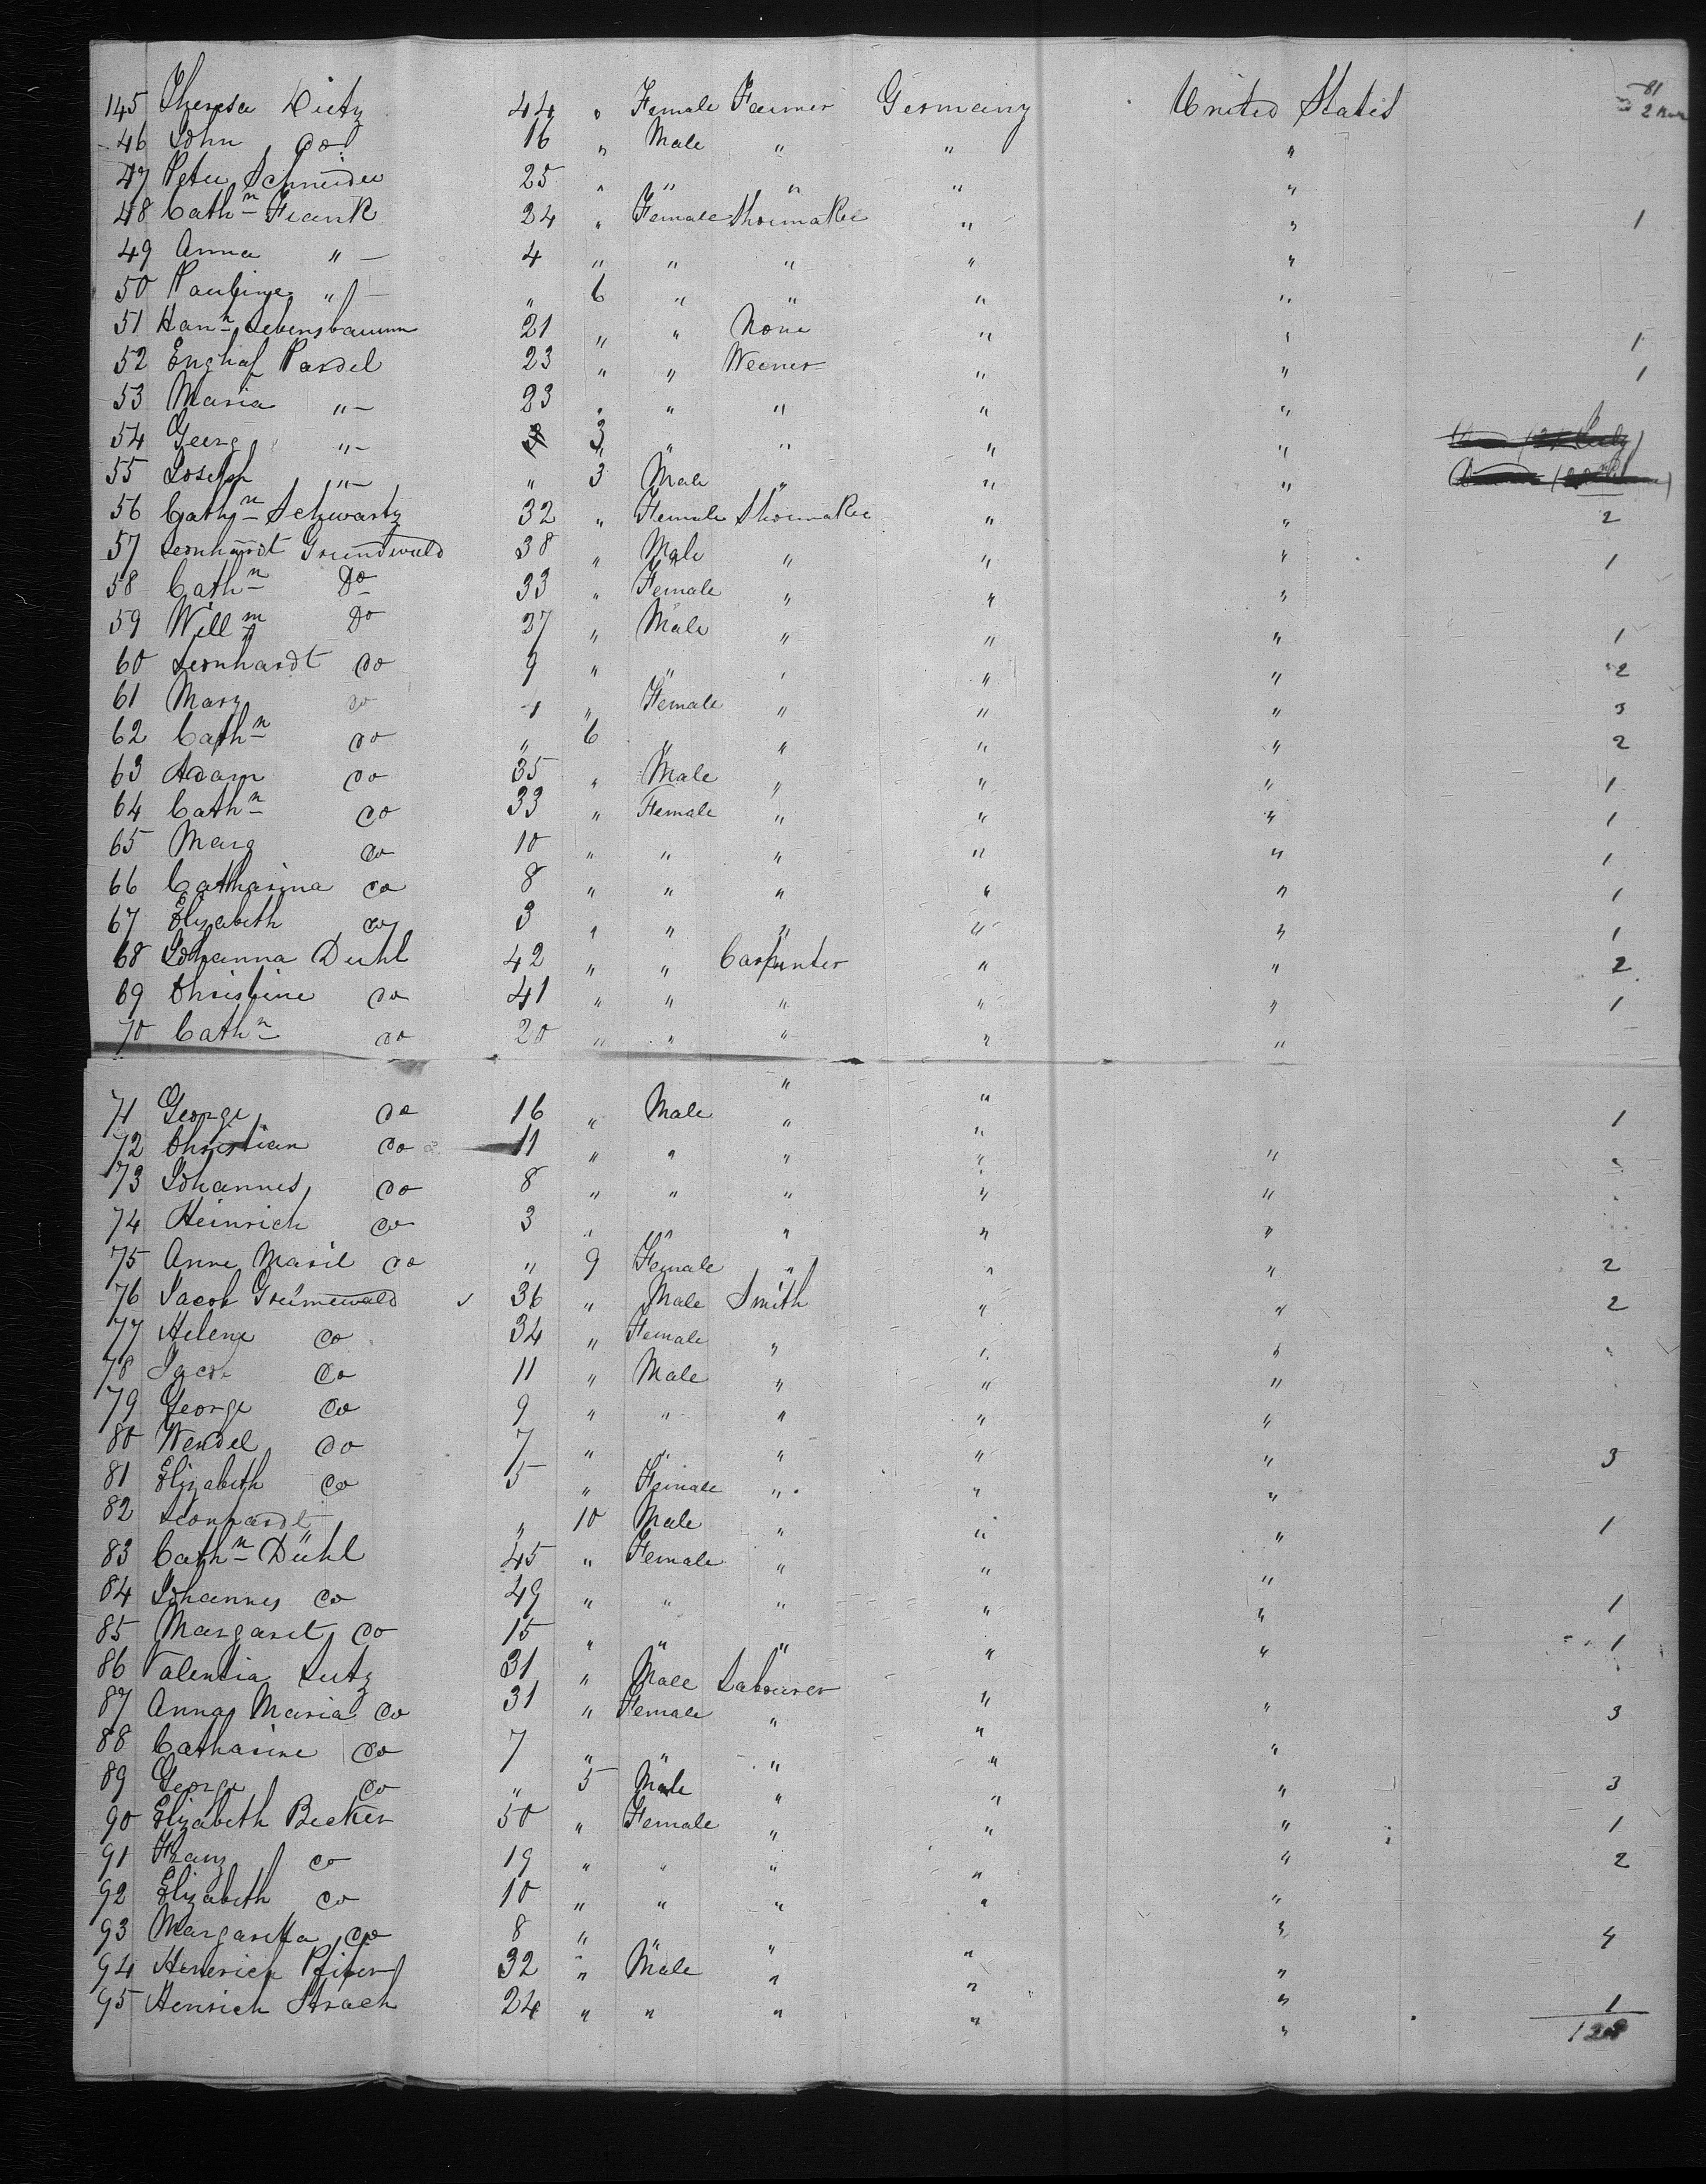 145 Theresa Dietz 44 " Female Farmer Germany United States 81
46 John do 16 " Male " " "
47 Peter Schneider 25 " " " " "
48 Cathn Frank 24 " Female Shoemaker " " 1
49 Anna " 4 " " " " "
50 Pauline " " 6 " " " "
51 Hann Lebensbaum 21 " " None " " 1
52 Pardel 23 " " " " 1
53 Maria " 23 " " " " "
54 Georg " 3 " " " "
55 Joseph " " 3 Male " " "
56 Cathn Schwartz 32 " Female Shoemaker " " 2
57 Leonhardt Grundwald 38 " Male " " " 1
58 Cathn Do 33 " Female " " "
59 Willm Do 27 " Male " " " 1
60 Leonhardt do 9 " " " " " 2
61 Mary do " Female " " " 3
62 Cathn do " 6 " " " " 2
63 Adam do 35 " Male " " " 1
64 Cathn do 33 " Female " " " 1
65 Marg do 10 " " " " " 1
66 Catharina do 8 " " " " " 1
67 Elizabeth do 3 " " " " " 1
68 Johanna Duhl 42 " " Carpenter " " 2
69 Christine do 41 " " " " " 1
70 Cathn do 20 " " " " "
71 George do 16 " Male " " 1
72 Christian do 11 " " " " "
73 Johannes do 8 " " " " "
74 Heinrich do 3 " " " " "
75 Anne Marie do " 9 Female " " " 2
76 Jacob Grünewald 36 " Male Smith " " 2
77 Helene do 34 " Female " " "
78 Jacob do 11 " Male " " "
79 George do 9 " " " " "
80 Wendel do 7 " " " " " 3
81 Elizabeth do 5 " Female " " "
82 Leonhardt " 10 Male " " " 1
83 Cathn Dühl 45 " Female " " "
84 Johannes do 49 " " " " " 1
85 Margaret do 15 " " " " " 1
86 Valentia Lutz 31 " Male Labourer " "
87 Anna Maria do 31 " Female " " " 3
88 Catharine do 7 " " " " "
89 George do " 5 Male " " " 3
90 Elizabeth Becker 50 " Female " " " 1
91 Franz do 19 " " " " " 2
92 Elizabeth do 10 " " " " "
93 Margaretta do 8 " " " " " 4
94 Henerich 32 " Male " " "
95 Henrich Strach 24 " " " " " 1
128